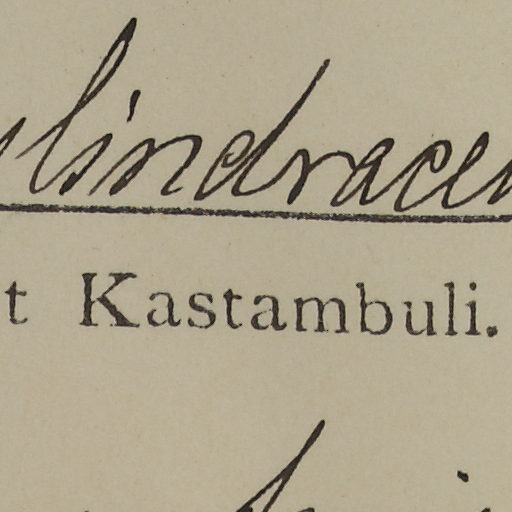 ylindraceu
t Kastambuli.